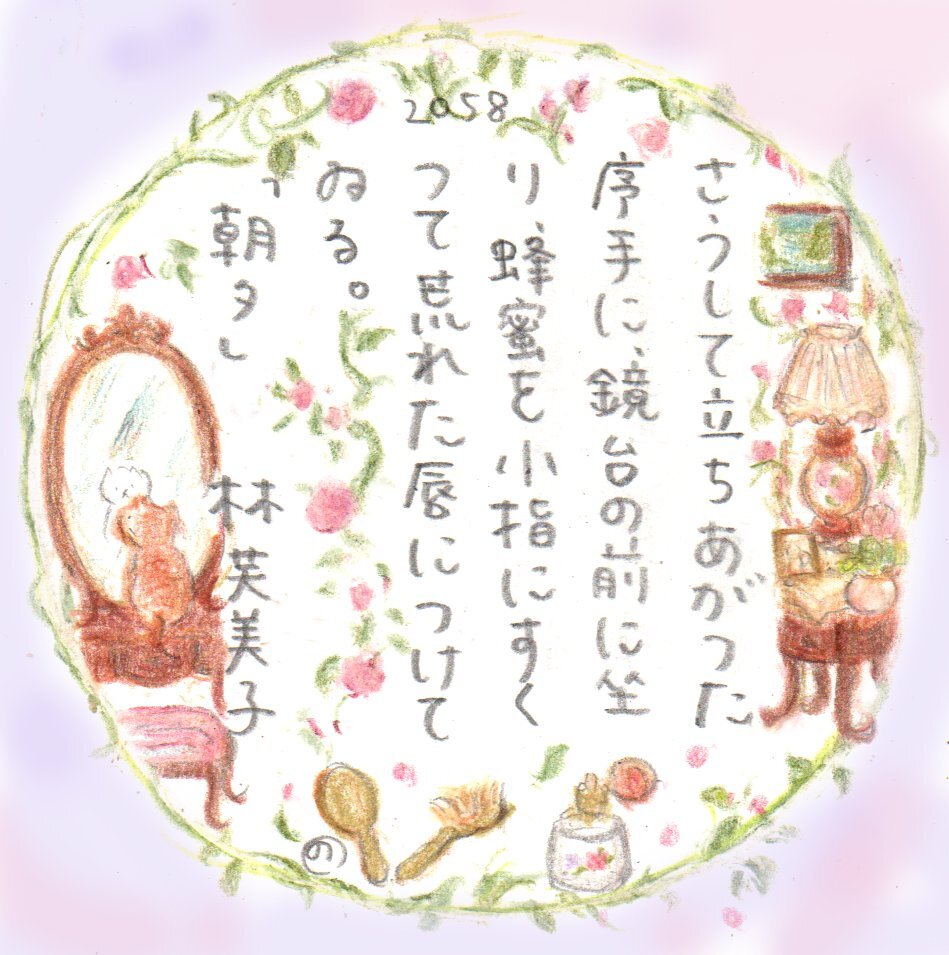 2058
さうして立ちあがつた
序手に、鏡台の前に坐
り、蜂蜜を小指にすく
つて荒れた唇につけて
ゐる。
「朝夕」 林芙美子
の